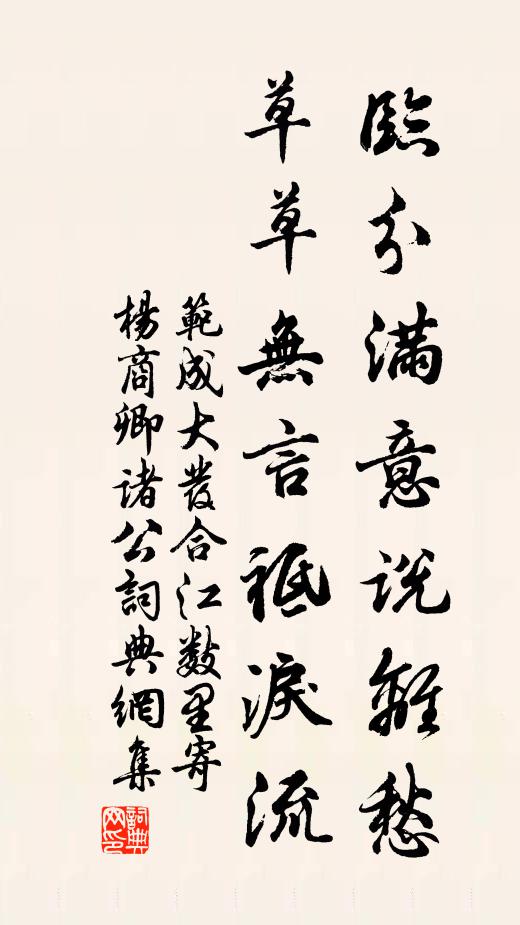 臨分滿意說離愁
草草無言祗淚流
範成大發合江數里寄
楊商卿諸公詞典網集
詞典
网印